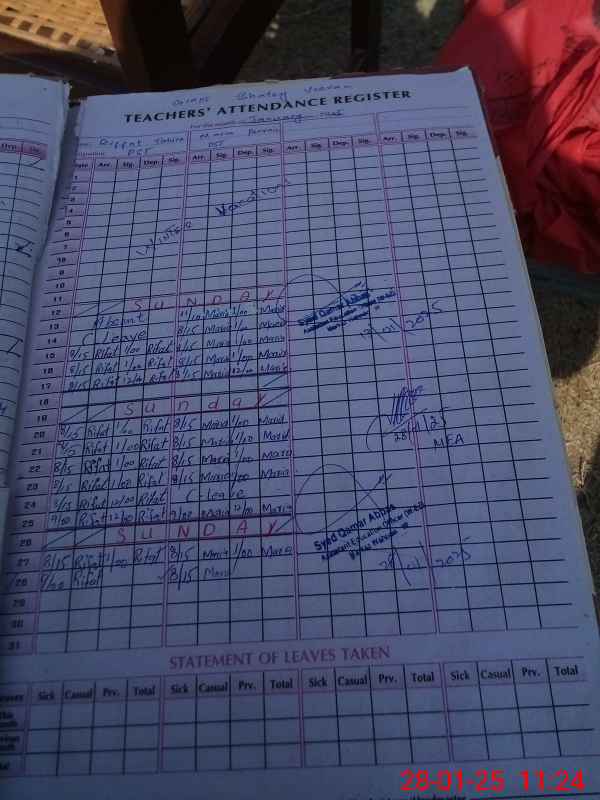 TEACHERS' ATTENDANCE REGISTER
January
Riffat Maria
PST PST
Arr. Sig. Dep. Sig. Arr. Sig. Dep. Sig. Arr. Sig. Dep. Sig. Arr. Sig. Dep. Sig.
1
2
3
4
5
6
7
8
9
10
Winter Vacation
11
12 SUNDAY
13 Absent Maria 1/00 Maria
14 C Leave 8/15 Maria 1/00 Maria
15 8/15 Rifat 1/00 Rifat 8/15 Maria 1/00 Maria
16 8/15 Rifat 1/00 Rifat 8/15 Maria 1/00 Maria
17 8/15 Rifat 12/00 Rifat 8/15 Maria 12/00 Maria
18
19 Sunday
20 8/15 Rifat 1/00 Rifat 8/15 Maria 1/00 Maria
21 Rifat 1/00 Rifat 8/15 Maria 1/00 Maria
22 8/15 Rifat 1/00 Rifat 8/15 Maria 1/00 Maria
23 8/15 Rifat 1/00 Rifat 8/15 Maria 1/00 Maria
24 8/15 Rifat 12/00 Rifat C-Leave
25 9/00 Rifat 12/00 Rifat 9/00 Maria 12/00 Maria
26 SUNDAY
27 8/15 Rifat 1/00 Rifat 8/15 Maria 1/00 Maria
28 9/00 Rifat 8/15 Maria
29
30
31
Syed Qamar Abbas
Assistant Education Officer
2025
28/1/25
MEA
Syed Qamar Abbas
Assistant Education Officer
28/01/2025
STATEMENT OF LEAVES TAKEN
Leaves Sick Casual Prv. Total Sick Casual Prv. Total Sick Casual Prv. Total Sick Casual Prv. Total
28-01-25 11:24